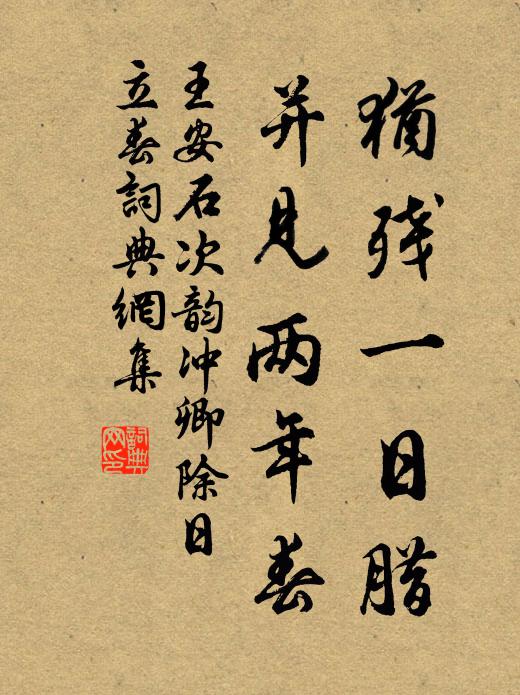 猶残一日腊
并見两年春
王安石次韵冲卿除日
立春詞典網集
詞典
网印